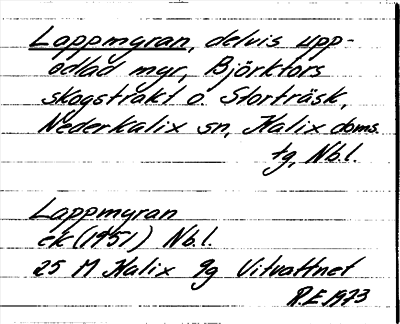 Lappmyran, delvis upp-
odlad myr, Björkfors
skogstrakt o. Storträsk,
Nederkalix sn, Kalix doms.
tg, Nb.l.
Lappmyran
ek (1951) Nb.l.
25 M Kalix 9g Vitvattnet
R.E 1973